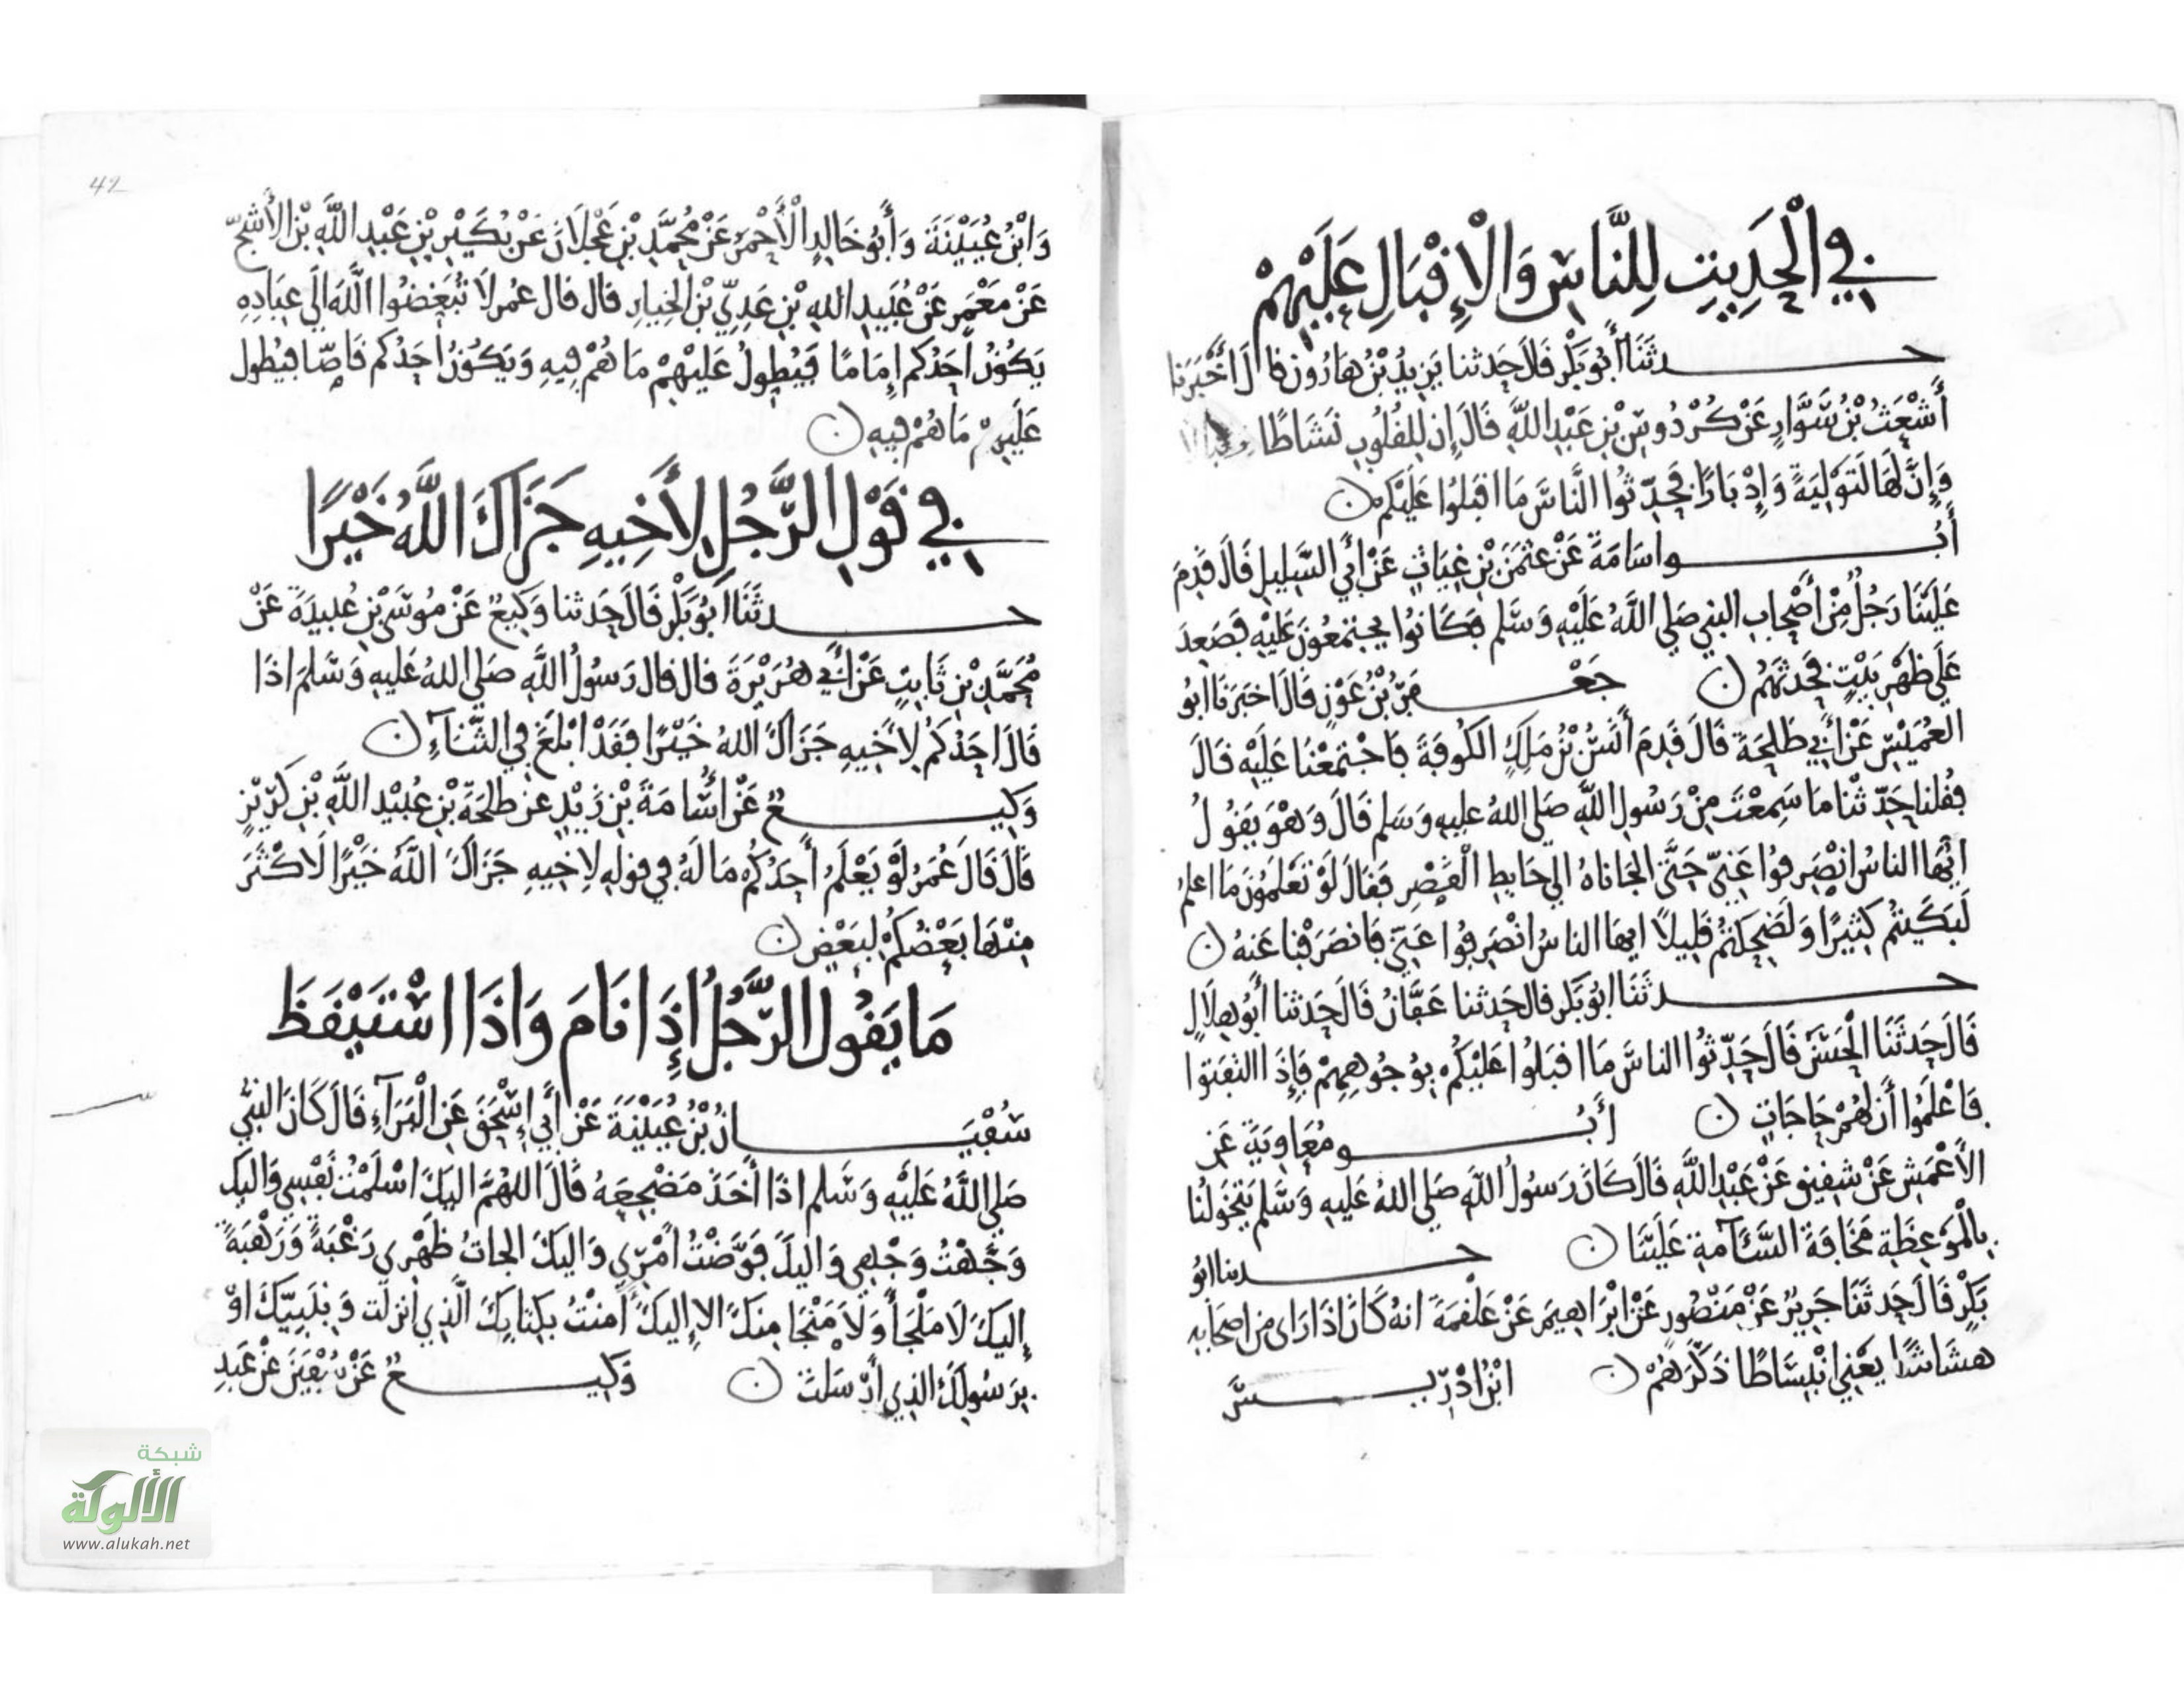 في الْحَدِيثِ لِلنَّاسِ وَالْإِقْبَالِ عَلَيْهِمْ
حدثَنَا أَبُو بَكْرٍ قَالَ حَدثنا يَزِيدُ بْنُ هَارُون قال أَخْبَرَنَا
أَشْعَثُ بْنُ سَوَّارٍ عَنْ كُرْدُوسِ بْنِ عَبْدِ اللَّهِ قَالَ إِن لِلقُلُوبِ نَشَاطًا
وَإِنَّ لَهَا لَتَوْلِيَةً وَإِدْبَارًا فَحَدِّثُوا النَّاسَ مَا اقبَلُوا عَلَيْكُم ن
أَبُو اسَامَةَ عَنْ عثمَنَ بْنِ غِيَاثٍ عَنْ أَبِي السَّلِيلِ قَالَ قَدِمَ
عَلَيْنَا رَجُلٌ مِنْ أَصْحَابِ النبي صَلي اللَّهُ عَلَيْهِ وَسَّلم فكَانُوا يجتمعُونَ عَلَيْهِ فصَعِدَ
عَلَي ظَهْرِ بَيْتٍ فحَدثهُم ن جَعْفَرُ بْنُ عَوْنٍ قَالَ اخبَرَنَا ابُو
العُمَيْسِ عَنْ أَبِي طَلحَةَ قَالَ قَدِمَ أَنَسُ بْنُ مَلِكٍ الكُوفَةَ فَاجْتمعْنَا عَلَيْه قَالَ
فقُلنا حَدِّثْنا مَا سَمِعْتَ مِنْ رَسُولِ اللَّهِ صَلي اللهُ عليهِ وَسَلم قَالَ وَهْوَ يَقُولُ
ايُّها الناسُ انْصَرِفوُا عَنِيّ حَتَّى الجاناهُ الي حَايطِ الْقَصْرِ فَقالَ لَوْ تَعْلَمُونَ مَا اعلمُ
لَبَكَيتُم كثِيرًا وَلَضَحِكتُم قَلِيلاً ايها الناسُ انْصَرِفوا عَنِيّ فَانصَرَفْنا عَنهُ ن
حدثَنَا ابُو بَكرٍ قال حَدثنا عَفَّانُ قَالَ حَدثنا أَبُو هِلَالٍ
قَالَ حَدثَنَا الْحَسَنُ قَالَ حَدِّثُوا الناسَ مَا اقبَلُوا عَلَيْكُم بِوُجُوهِهِمْ فَإِذَا التَفَتوا
فَاعْلَمُوا أَن لَهُمْ حَاجَاتٍ ن أَبُو مُعَاوِيَةَ عَنِ
الأعْمَشِ عَنْ شَقِيقٍ عَنْ عَبْدِ اللَّهِ قَالَ كَانَ رَسُولُ اللَّهِ صَلي اللهُ عَليهِ وَسَّلم يَتَخَوَلُنا
بِالْمَوْعِظَةِ مَخَافَةَ السَّئَامَةِ عَلَيْنَا ن حدثنا ابُو
بَكْرٍ قَالَ حَدثَنَا جَرِيرٌ عَنْ مَنْصُورٍ عَنْ ابْرَاهِيمَ عَنْ عَلْقَمَةَ انهُ كَانَ اذَا رَاى مِن اصحَابِهِ
هشَاشًا يَعْنِي انْبِسَاطًا ذَكَّرَهُمْ ن ابْنُ ادْرِيسَ
42
وَابْنُ عُيَيْنَةَ وَأَبُو خَالِدٍ الْأَحْمَرُ عَنْ مُحَمَّدِ بْنِ عَجْلَانَ عَنْ بُكَيْرِ بْنِ عَبْدِ اللَّهِ بْنِ الأَشَجِّ
عَنْ مَعْمَرٍ عَنْ عُبَيدِ اللهِ بْنِ عَدِيِّ بْنِ الخِيارِ قال قال عُمر لَا تُبَغضُوا اللَّهَ الَي عِبَادِهِ
يَكُونُ أَحَدُكم إِمَامًا فَيُطولُ عَلَيْهِمْ مَا هُمْ فِيهِ وَيَكُونُ أَحَدُكم قَاصًّا فيُطول
عَلَيهِمْ مَا هُمْ فِيهِ ن
في قَوْلِ الرَّجُلِ لِأَخِيهِ جَزَاكَ اللَّهُ خَيْرًا
حدثَنَا ابُو بَكْرٍ قَالَ حَدثنا وَكِيعٌ عَنْ مُوسَى بْنِ عُبيدَةَ عَنْ
مُحَمَّدِ بْنِ ثَابِتٍ عَنْ أَبِي هُرَيْرَةَ قال قال رَسُولُ اللَّهِ صَلي اللهُ عَليهِ وَسَّلمَ اذَا
قَالَ احَدُكُم لِأَخِيهِ جَزَاكَ اللهُ خَيْرًا فَقَدْ ابْلَغَ فِي الثَّنَآءِ ن
وَكِيعٌ عَنْ أُسَامَةَ بْنِ زَيْدٍ عَن طَلحَةَ بْنِ عُبَيْدِ اللَّهِ بْنِ كَرِيْزٍ
قَالَ قَالَ عُمَرُ لَوْ يَعْلَمُ أَحَدُكُم مَا لَهُ فِي قولهِ لِاخِيهِ جَزَاكَ اللَّهُ خَيْرًا لَاكْثَرَ
مِنْهَا بَعْضُكُمْ لِبَعْضٍ ن
مَا يَقُولُ الرَّجُلُ إِذَا نَامَ وَاذَا اسْتَيْقَظَ
سُفْيَانُ بْنُ عُيَيْنَةَ عَنْ أَبِي إِسْحَقَ عَنِ الْبَرَآءِ قَالَ كَانَ النبيُّ
صَلي اللَّهُ عَلَيْهِ وَسَّلم اذَا أَخَذَ مَضْجَعَهُ قَالَ اللهُمَّ اليْكَ اسْلَمْتُ نَفْسِي وَاليْكَ
وَجَّهْتُ وَجْهِي وَاليْكَ فَوَّضْتُ أَمْرِي وَاليْكَ الجاتُ ظَهْرِى رَغْبَةً وَرَهْبَةً
إِليْكَ لَا مَلْجَأَ وَلَا مَنْجَا مِنكَ الا إِليْكَ آمنْتُ بِكِتابِكَ الَّذِي انزلتَ وَبِنَبِيِّكَ اوْ
بِرَسُولِكَ الذِي أَرْسَلتَ ن وَكِيعٌ عَنْ سُفْيَنَ عَنْ عَبْدِ
شبكة
الألوكة
www.alukah.net